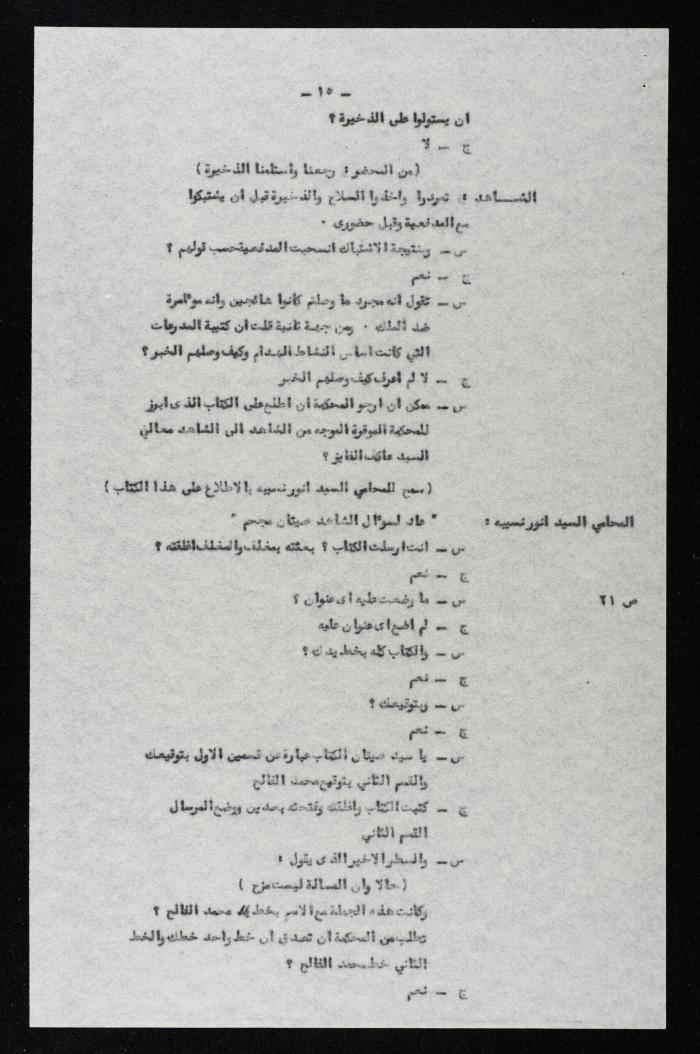 - ١٥ -
ان يستولوا على الذخيرة ؟
ج - لا
(من المحضر : رجعنا واستلمنا الذخيرة )
الشــاهد : تمردوا واخذوا السلاح والذخيرة قبل ان يشتبكوا
مع المدفعية وقبل حضورى .
س - وبنتيجة الاشتباك انسحبت المدفعية حسب قولهم ؟
ج - نعم
س - تقول انه مجرد ما وصلتم كانوا هائجين وانه مؤامرة
ضد الملك . ومن جهة ثانية قلت ان كتيبة المدرعات
التي كانت اساس النشاط الهدام وكيف وصلهم الخبر ؟
ج - لا لم اعرف كيف وصلهم الخبر
س - ممكن ان ارجو المحكمة ان اطلع على الكتاب الذى ابرز
للمحكمة الموقرة الموجه من الشاهد الى الشاهد معالي
السيد عاكف الفايز ؟
( سمح للمحامي السيد انور نسيبه بالاطلاع على هذا الكتاب )
المحامي السيد انور نسيبه : " عاد لسؤال الشاهد صيتان مجحم "
س - انت ارسلت الكتاب ؟ بعثته بمغلف والمغلف اغلقته ؟
ج - نعم
ص ٢١ س - ما وضعت عليه اى عنوان ؟
ج - لم اضع اى عنوان عليه
س - والكتاب كله بخط يدك ؟
ج - نعم
س - وبتوقيعك ؟
ج - نعم
س - يا سيد صيتان الكتاب عبارة عن قسمين الاول بتوقيعك
والقسم الثاني بتوقيع محمد الفالح
ج - كتبت الكتاب واغلقته وفتحته بعدين ووضع المرسال
القسم الثاني
س - والسطر الاخير الذى يقول :
( حالا وان المسالة ليست مزح )
وكانت هذه الجملة مع الاسم بخط محمد الفالح ؟
تطلب من المحكمة ان تصدق ان خط واحد خطك والخط
الثاني خط محمد الفالح ؟
ج - نعم